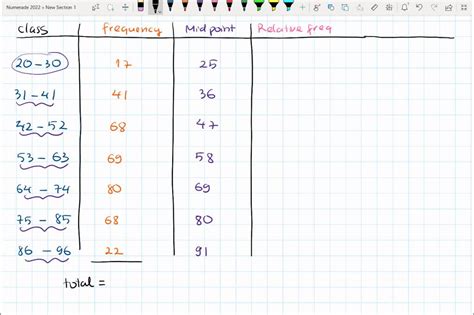 Numerade 2022 > New Section 1
Class frequency Midpoint Relative freq
20-30 17 25
31-41 41 36
42-52 68 47
53-63 69 58
64-74 80 69
75-85 68 80
86-96 22 91
total =